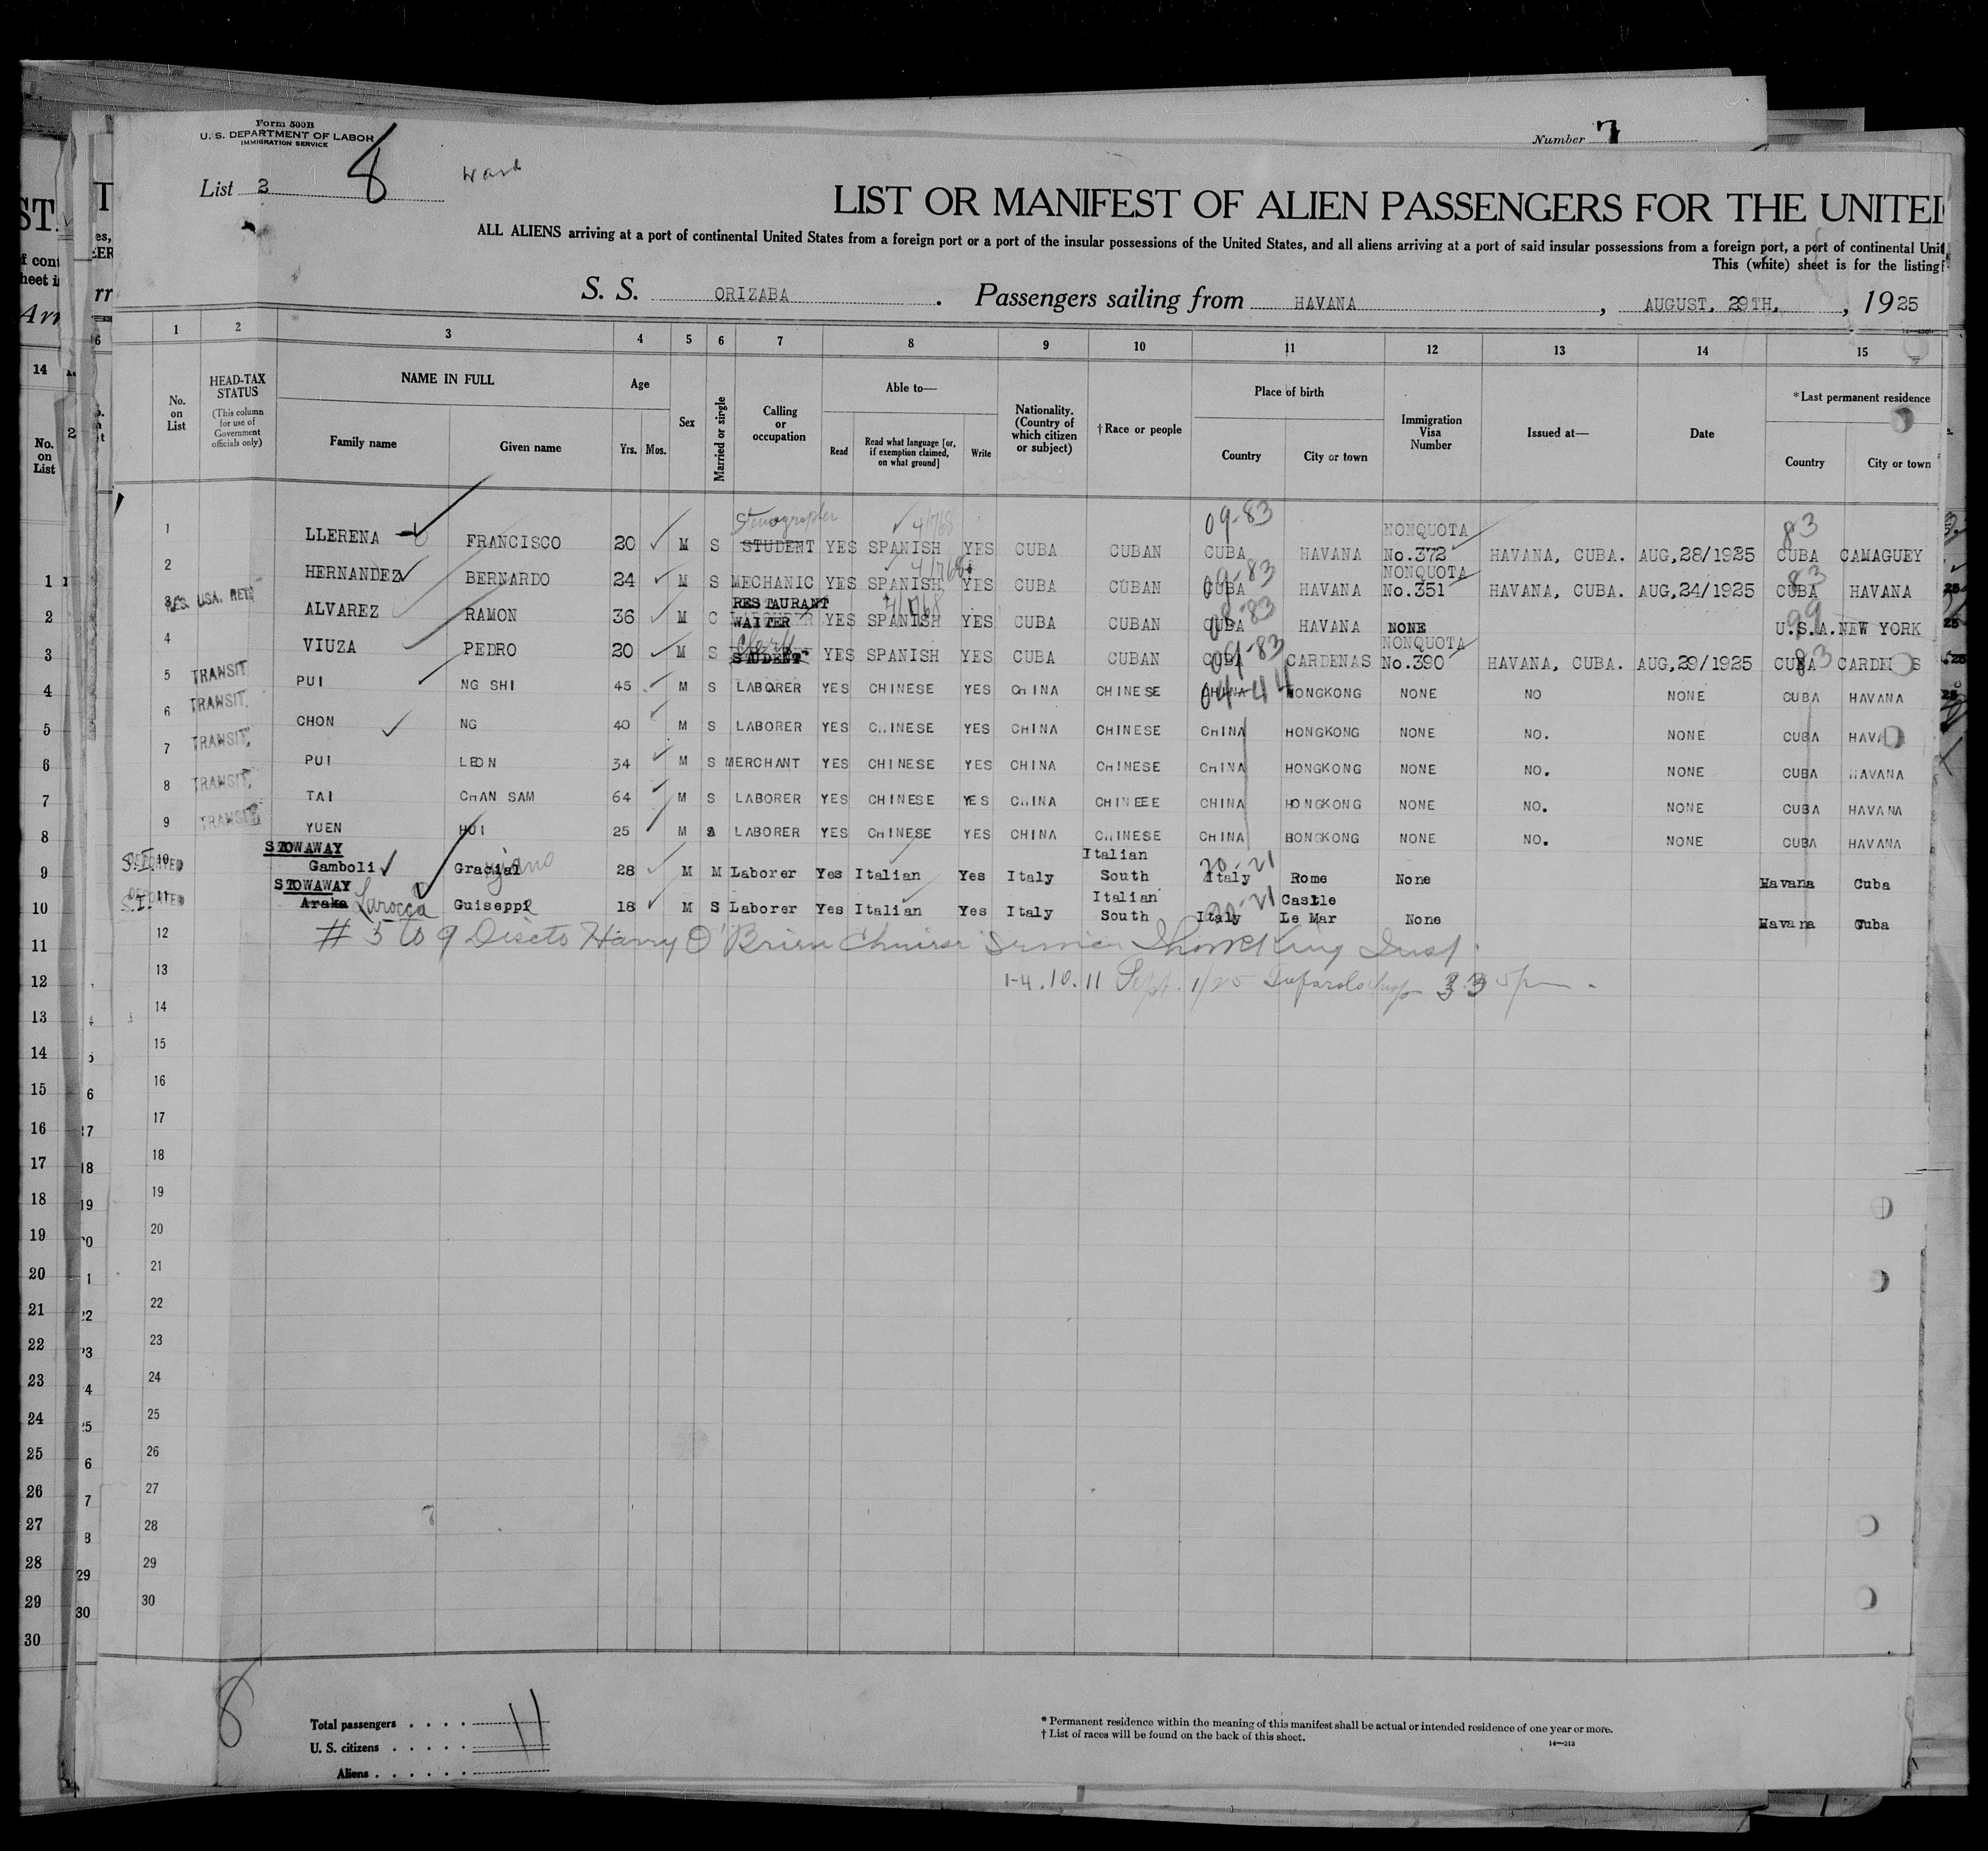 Form 500B
U. S. DEPARTMENT OF LABOR
IMMIGRATION SERVICE
Number 7
List 3
8
Ward
LIST OR MANIFEST OF ALIEN PASSENGERS FOR THE UNITED
ALL ALIENS arriving at a port of continental United States from a foreign port or a port of the insular possessions of the United States, and all aliens arriving at a port of said insular possessions from a foreign port, a port of continental Unit
This (white) sheet is for the listing
S. S. ORIZABA. Passengers sailing from HAVANA, AUGUST, 29TH, 1925
1 2 3 4 5 6 7 8 9 10 11 12 13 14 15
No. on List
HEAD-TAX STATUS (This column for use of Government officials only)
NAME IN FULL Family name Given name
Age Yrs. Mos.
Sex
Married or single
Calling or occupation
Able to— Read Read what language [or, if exemption claimed, on what ground] Write
Nationality. (Country of which citizen or subject)
†Race or people
Place of birth Country City or town
Immigration Visa Number
Issued at—
Date
*Last permanent residence Country City or town
Stenographer 4/768 09-83 NONQUOTA 83
1 LLERENA FRANCISCO 20 M S STUDENT YES SPANISH YES CUBA CUBAN CUBA HAVANA No.372 HAVANA, CUBA. AUG,28/1925 CUBA CAMAGUEY
4/768 09-83 NONQUOTA 83
2 HERNANDEZ BERNARDO 24 M S MECHANIC YES SPANISH YES CUBA CUBAN CUBA HAVANA No.351 HAVANA, CUBA. AUG,24/1925 CUBA HAVANA
RES. USA. RET RESTAURANT 4/1768 08-83 99
3 ALVAREZ RAMON 36 M C WAITER YES SPANISH YES CUBA CUBAN CUBA HAVANA NONE U.S.A. NEW YORK
Clerk 09-83 NONQUOTA 83
4 VIUZA PEDRO 20 M S STUDENT YES SPANISH YES CUBA CUBAN CUBA CARDENAS No.390 HAVANA, CUBA. AUG,29/1925 CUBA CARDE S
5 TRANSIT PUI NG SHI 45 M S LABORER YES CHINESE YES CHINA CHINESE CHINA 04-44 HONGKONG NONE NO NONE CUBA HAVANA
6 TRANSIT. CHON NG 40 M S LABORER YES CHINESE YES CHINA CHINESE CHINA HONGKONG NONE NO. NONE CUBA HAVA
7 TRANSIT. PUI LEON 34 M S MERCHANT YES CHINESE YES CHINA CHINESE CHINA HONGKONG NONE NO. NONE CUBA HAVANA
8 TRANSIT. TAI CHAN SAM 64 M S LABORER YES CHINESE YES CHINA CHINEEE CHINA HONGKONG NONE NO. NONE CUBA HAVANA
9 TRANSIT YUEN HOI 25 M S LABORER YES CHINESE YES CHINA CHINESE CHINA BONGKONG NONE NO. NONE CUBA HAVANA
STOWAWAY Italian 20-21
10 S.I. DEPORTED Gamboli Gracial 28 M M Laborer Yes Italian Yes Italy South Italy Rome None Havana Cuba
STOWAWAY Italian 20-21 Castle
11 S.I. DEPORTED Araka Larocca Guiseppi 18 M S Laborer Yes Italian Yes Italy South Italy Le Mar None Havana Cuba
12 # 5 to 9 Disc to Harry O'Brien Chinese Insp.
13 1-4. 10. 11 Sept. 1/25 Insp 3 35 pm.
14
15
16
17
18
19
20
21
22
23
24
25
26
27
28
29
30
8
Total passengers . . . . 11
U. S. citizens . . . . .
Aliens . . . . . .
* Permanent residence within the meaning of this manifest shall be actual or intended residence of one year or more.
† List of races will be found on the back of this sheet.
14—213